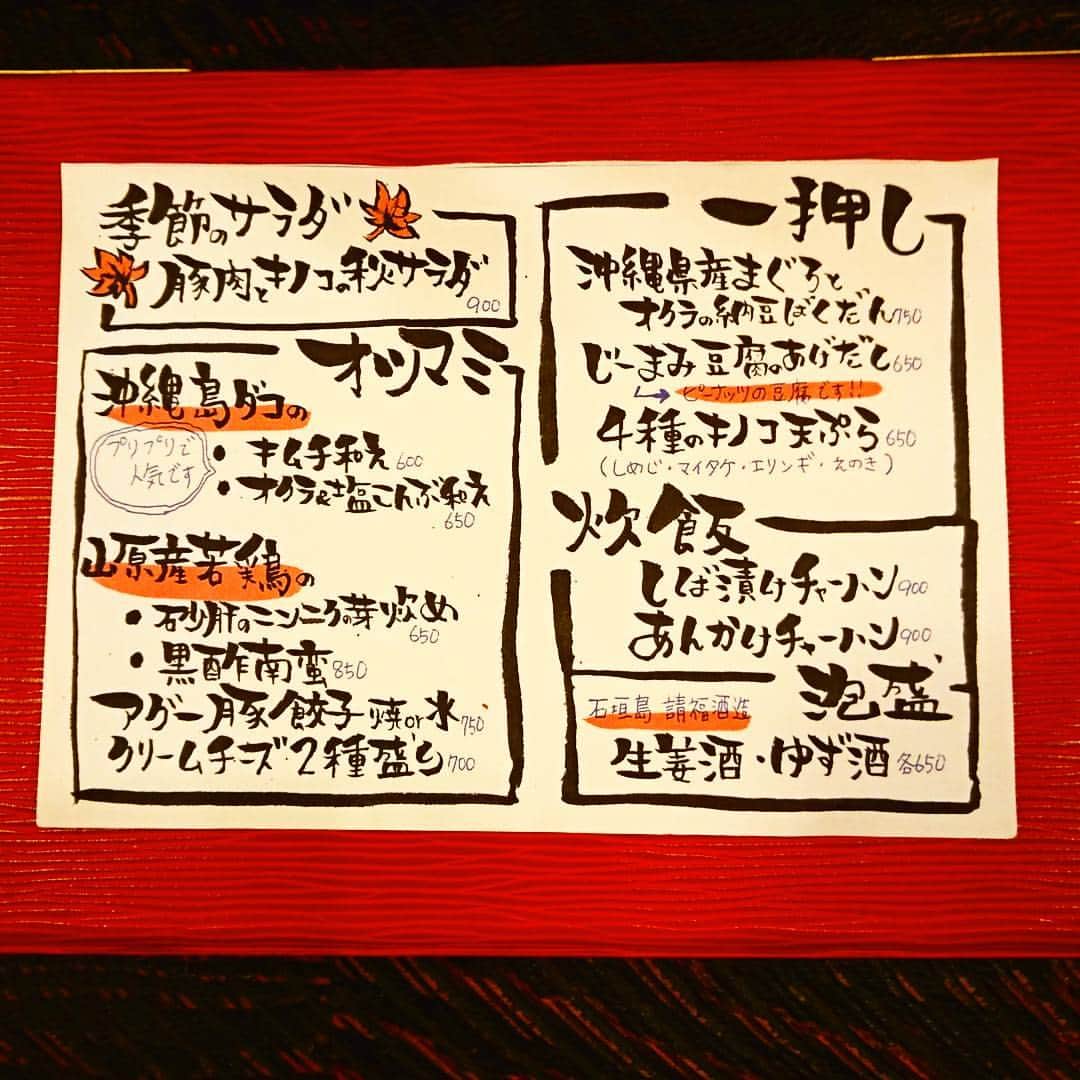 季節のサラダ
豚肉とキノコの秋サラダ 900
オツマミ
沖縄島ダコの
プリプリで
人気です
・キムチ和え 600
・オクラ&塩こんぶ和え 650
山原産若鶏の
・砂肝のニンニクの芽炒め 650
・黒酢南蛮 850
アグー豚餃子 焼or水 750
クリームチーズ2種盛り 700
一押し
沖縄県産まぐろと
オクラの納豆ばくだん 750
じーまみ豆腐のあげだし 650
→ピーナッツの豆腐です!!
4種のキノコ天ぷら 650
(しめじ・マイタケ・エリンギ・えのき)
炊飯
しば漬けチャーハン 900
あんかけチャーハン 900
泡盛
石垣島 請福酒造
生姜酒・ゆず酒 各650